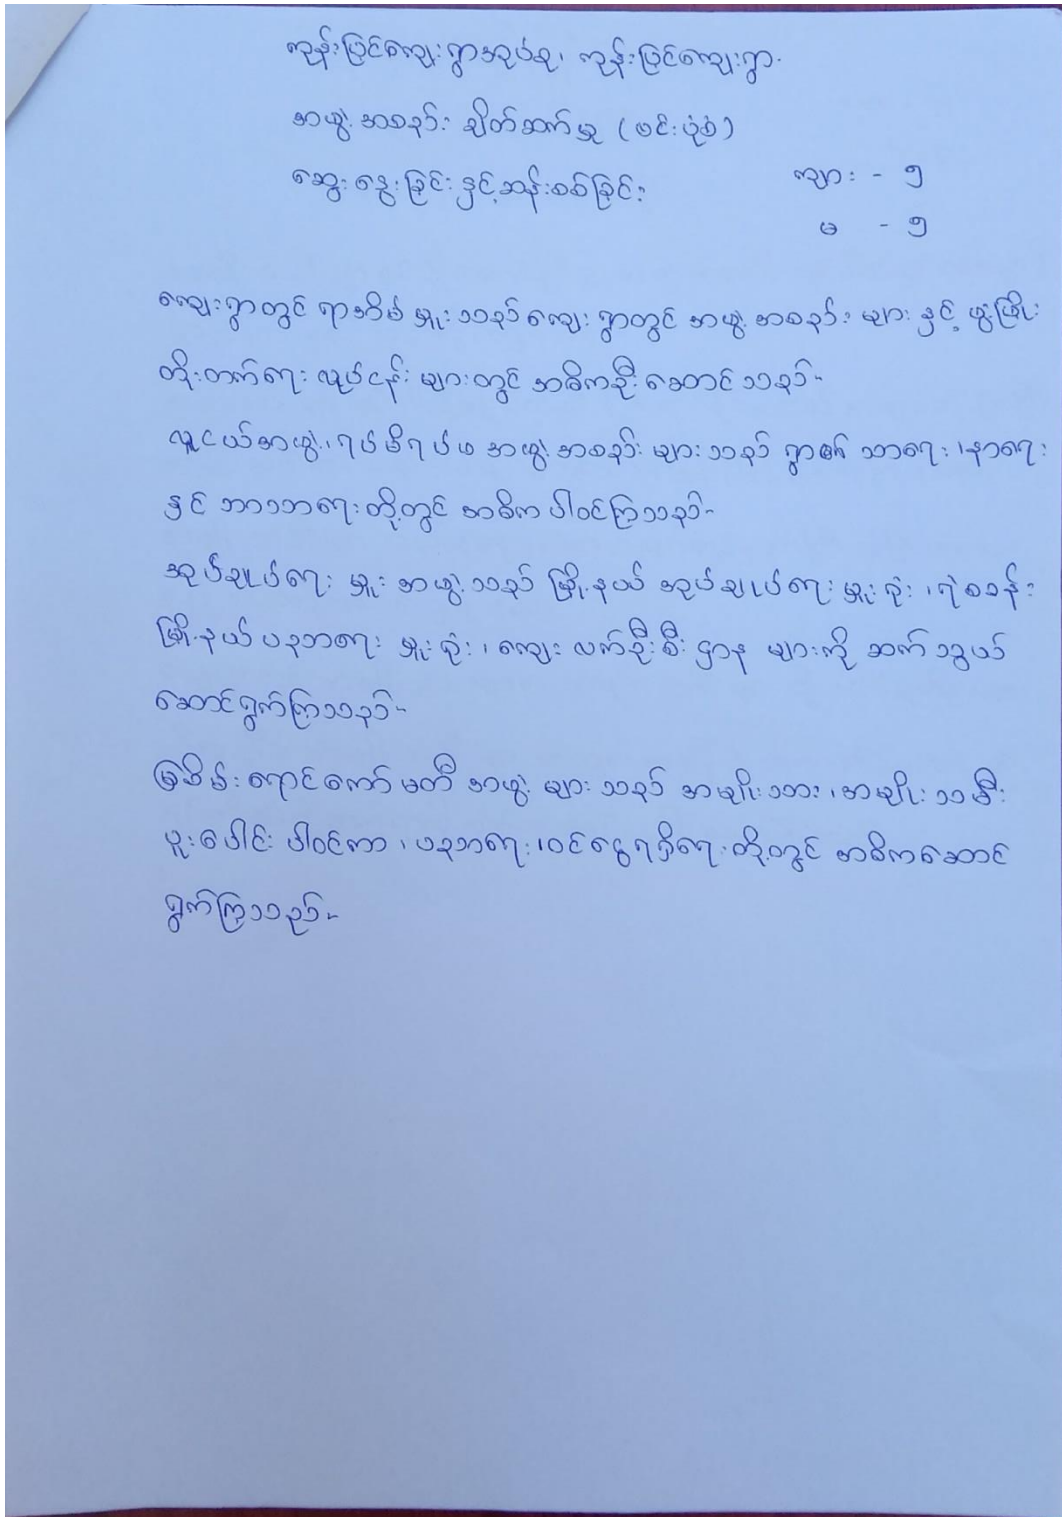 ကုန်းမြင့်ကျေးရွာအုပ်စု၊ ကုန်းမြင့်ကျေးရွာ
အဖွဲ့အစည်း ချိတ်ဆက်မှု (ဗင်းပုံစံ)
ဆွေးနွေးခြင်းနှင့်ဆန်းစစ်ခြင်း
ကျား - ၅
မ - ၅
ကျေးရွာတွင် ရာအိမ်မှူးသည် ကျေးရွာတွင် အဖွဲ့အစည်းများနှင့် ဖွံ့ဖြိုး
တိုးတက်ရေး လုပ်ငန်းများတွင် အဓိကဦးဆောင်သည်။
လူငယ်အဖွဲ့၊ ရပ်မိရပ်ဖ အဖွဲ့အစည်းများသည် ရွာ၏ သာရေး၊ နာရေး
နှင့် ဘာသာရေးတို့တွင် အဓိကပါဝင်ကြသည်။
အုပ်ချုပ်ရေးမှူးအဖွဲ့သည် မြို့နယ် အုပ်ချုပ်ရေးမှူးရုံး၊ ရဲစခန်း
မြို့နယ်ပညာရေးမှူးရုံး၊ ကျေးလက်ဦးစီးဌာနများကို ဆက်သွယ်
ဆောင်ရွက်ကြသည်။
မြစိမ်းရောင်ကော်မတီ အဖွဲ့များသည် အမျိုးသား၊ အမျိုးသမီး
ပူးပေါင်းပါဝင်ကာ၊ ပညာရေး၊ ဝင်ငွေရရှိရေးတို့တွင် အဓိကဆောင်
ရွက်ကြသည်။